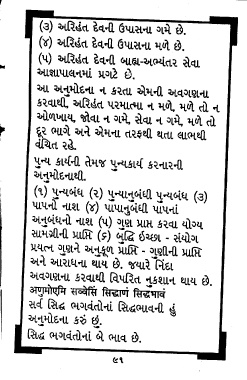 (૩) અરિહંત દેવની ઉપાસના ગમે છે.
(૪) અરિહંત દેવની ઉપાસના મળે છે.
(૫) અરિહંત દેવની બાહ્ય-અભ્યંતર સેવા
આજ્ઞાપાલનમાં પ્રગટે છે.
આ અનુમોદના ન કરતા એમની અવગણના
કરવાથી, અરિહંત પરમાત્મા ન મળે, મળે તો ન
ઓળખાય, જોવા ન ગમે, સેવા ન ગમે, મળે તો
દૂર ભાગે અને એમના તરફથી થતા લાભથી
વંચિત રહે.
પુન્ય કાર્યની તેમજ પુન્યકાર્ય કરનારની
અનુમોદનાથી.
(૧) પુન્યબંધ (૨) પુન્યાનુબંધી પુન્યબંધ (૩)
પાપનો નાશ (૪) પાપાનુબંધી પાપનાં
અનુબંધનો નાશ (૫) ગુણ પ્રાપ્ત કરવા યોગ્ય
સામગ્રીની પ્રાપ્તિ (૬) બુદ્ધિ ઈચ્છા - સંયોગ
પ્રયત્ન ગુણને અનુકૂળ પ્રાપ્તિ - ગુણીની પ્રાપ્તિ
અને આરાધના થાય છે. જ્યારે નિંદા
અવગણના કરવાથી વિપરિત નુકશાન થાય છે.
અણુમોએમિ સવ્વેસિં સિદ્ધાણં સિદ્ધભાવં
સર્વ સિદ્ધ ભગવંતોનાં સિદ્ધભાવની હું
અનુમોદના કરું છું.
સિદ્ધ ભગવંતોનાં બે ભાવ છે.
૯૧